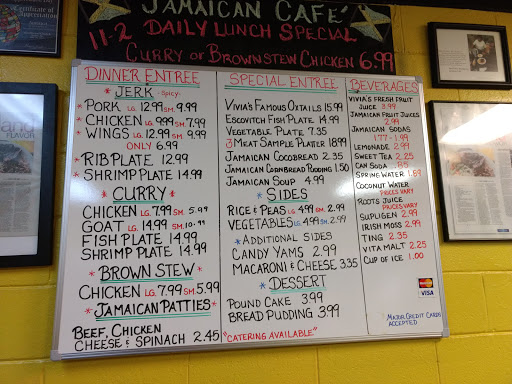 JAMAICAN CAFE'
11-2 DAILY LUNCH SPECIAL
CURRY OR BROWNSTEW CHICKEN 6.99
DINNER ENTREE
JERK -SPICY-
* PORK LG. 12.99 SM. 9.99
* CHICKEN LG. 9.99 SM. 7.99
* WINGS LG. 12.99 SM. 9.99
ONLY 6.99
* RIB PLATE 12.99
* SHRIMP PLATE 14.99
CURRY
CHICKEN LG. 7.99 SM. 5.99
GOAT LG. 14.99 SM. 10.99
FISH PLATE 14.99
SHRIMP PLATE 14.99
BROWN STEW
CHICKEN LG. 7.99 SM. 5.99
* JAMAICAN PATTIES *
BEEF, CHICKEN
CHEESE & SPINACH 2.45
SPECIAL ENTREE
VIVIA'S FAMOUS OXTAILS 15.99
ESCOVITCH FISH PLATE 14.99
VEGETABLE PLATE 7.35
3 MEAT SAMPLE PLATTER 18.99
JAMAICAN COCOBREAD 2.35
JAMAICAN CORNBREAD PUDDING 1.50
JAMAICAN SOUP 4.99
* SIDES
RICE & PEAS LG. 4.99 SM. 2.99
VEGETABLES LG. 4.99 SM. 2.99
* ADDITIONAL SIDES
CANDY YAMS 2.99
MACARONI & CHEESE 3.35
* DESSERT
POUND CAKE 3.99
BREAD PUDDING 3.99
"CATERING AVAILABLE"
BEVERAGES
VIVIA'S FRESH FRUIT
JUICE 3.99
JAMAICAN FRUIT JUICES
2.99
JAMAICAN SODAS
1.77-1.99
LEMONADE 2.99
SWEET TEA 2.25
CAN SODA .85
SPRING WATER 1.69
COCONUT WATER
PRICES VARY
ROOTS JUICE
PRICES VARY
SUPLIGEN 2.99
IRISH MOSS 2.99
TING 2.35
VITA MALT 2.25
CUP OF ICE 1.00
MasterCard
VISA
MAJOR CREDIT CARDS
ACCEPTED
Certificate of
Appreciation
FLAVOR